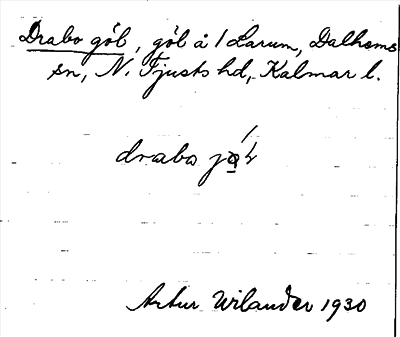 Drabo göl, göl å 1 Larum, Dalhems
sn, N. Tjusts hd, Kalmar l.
drabo
Artur Wilander 1930